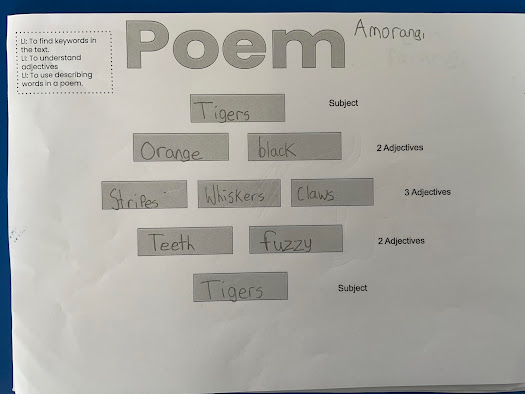 LI: To find keywords in
the text.
LI: To understand
adjectives
LI: To use describing
words in a poem.
Poem
Amorangi
Tigers Subject
Orange black 2 Adjectives
Stripes Whiskers Claws 3 Adjectives
Teeth fuzzy 2 Adjectives
Tigers Subject